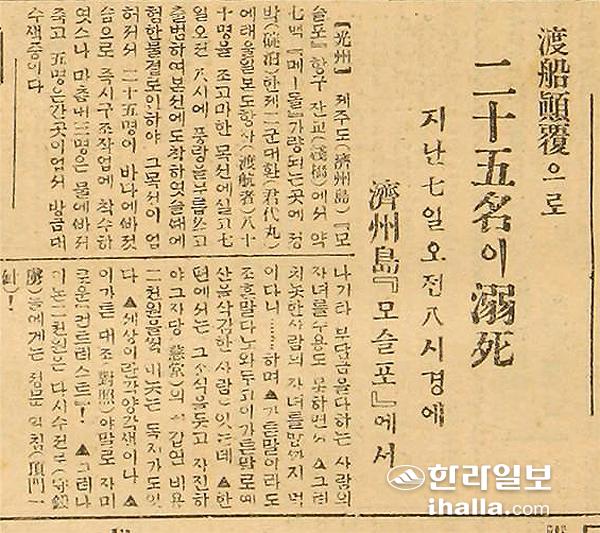 渡船顚覆으로
二十五名이 溺死
지난 七일 오전 八시경에
濟州島『모슬포』에서
【光州】 제주도(濟州島)『모
슬포』 항구 잔교(棧橋)에서 약
七백『메—돌』가량되는곳에 정
박(碇泊)한 제二군대환(君代丸)
에태울일본도항자(渡航者)八十
명을 조고마한 목선에실고七
일오전 八시에 풍랑을무릅쓰고
출범하여본선에도착하엿슬때에
험한물결로인하야 그목선이 업
허저서 二十五명이 바다에빠젓
슴으로 즉시구조작업에 착수하
엿스나 마츰내 三명은 물에빠저
죽고 五명은간곳이업서 방금대
수색중이다
나기타 부담금을다하는 사람의
자녀를수용도 못하면서 ▲그러
치못한사람의 자녀를맛하지 먹
이다니……하며 ▲가튼말이라도
조흔말다노와두고이가튼말로떼
산을삭감한 사람이 잇는데 ▲한
편에서는 그소식을듯고 자진하
야그자당 의 비용
二천원을썩 내놋는 독지가도잇
다 ▲세상이란각양각색이나 ▲
이가튼 대조(對照)야말로 자미
로운『컨트라스트』! ▲그러나
이논二천원은 다시수전로(守錢
虜)들에게는 정문 일침(頂門一
針)!
한라일보
ihalla.com